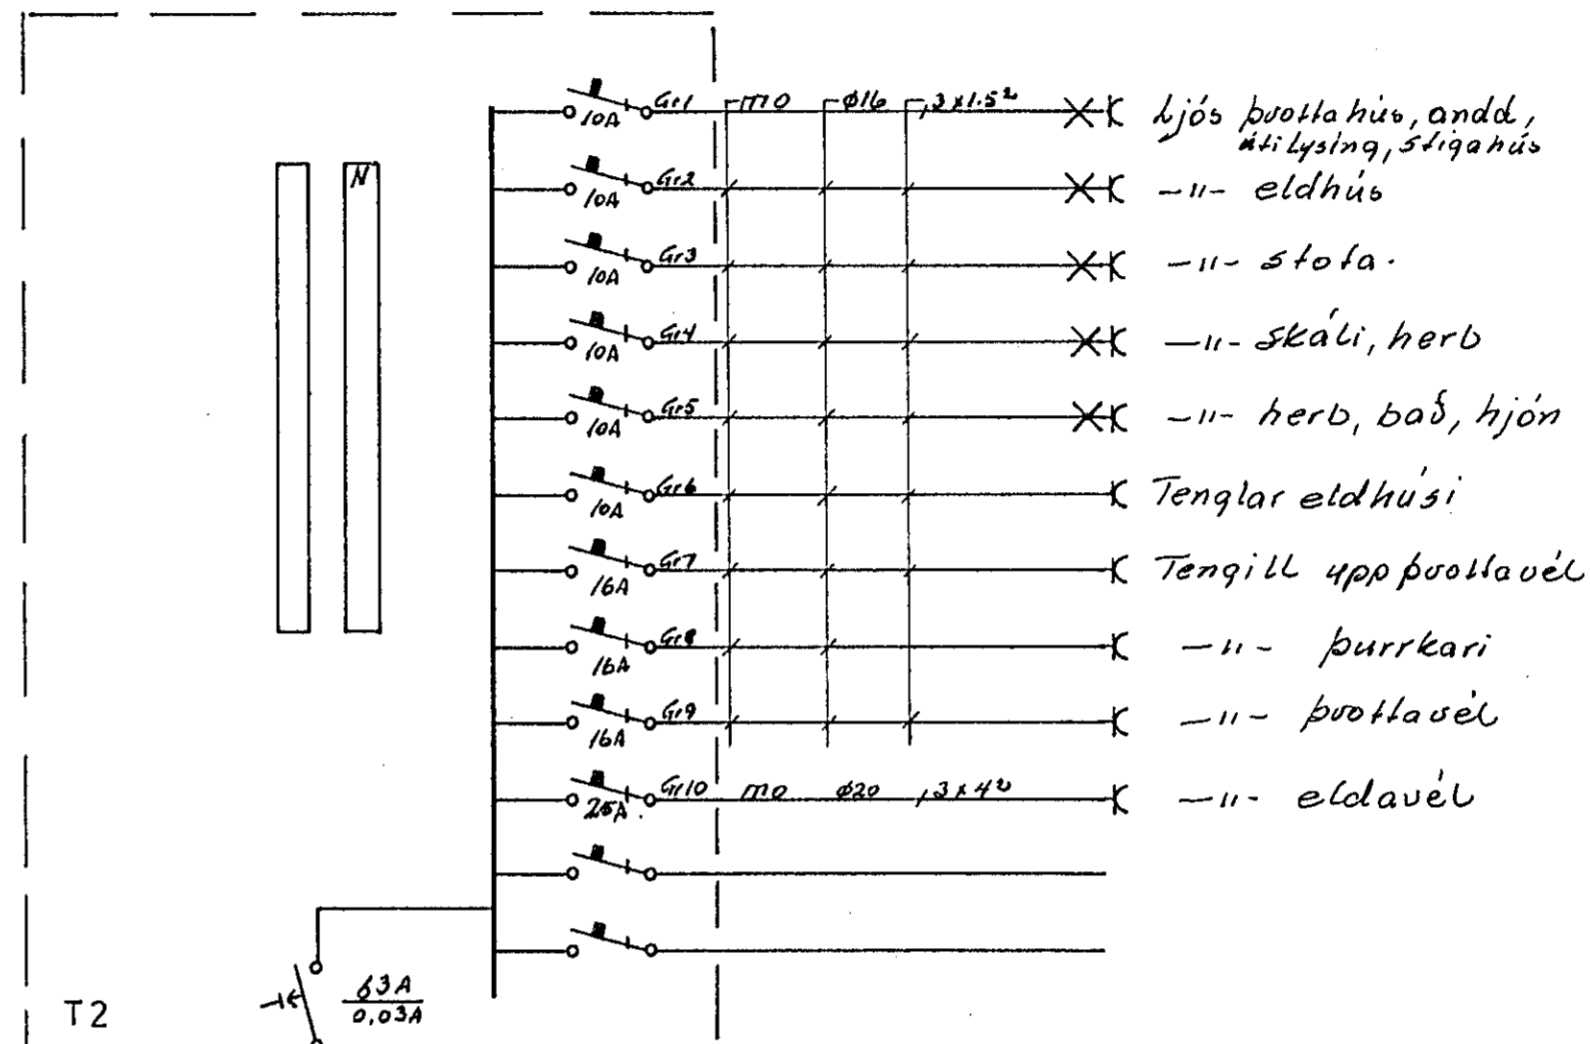 Gr1 mo ø16 3x1.5² Ljós þvottahús, andd,
10A útilýsing, stigahús
N Gr2 -"- eldhús
10A
Gr3 -"- stofa.
10A
Gr4 -"- skáli, herb
10A
Gr5 -"- herb, bað, hjón
10A
Gr6 Tenglar eldhúsi
10A
Gr7 Tengill uppþvottavél
16A
Gr8 -"- þurrkari
16A
Gr9 -"- þvottavél
16A
Gr10 mo ø20 3x4² -"- eldavél
25A
63A
0,03A
T2